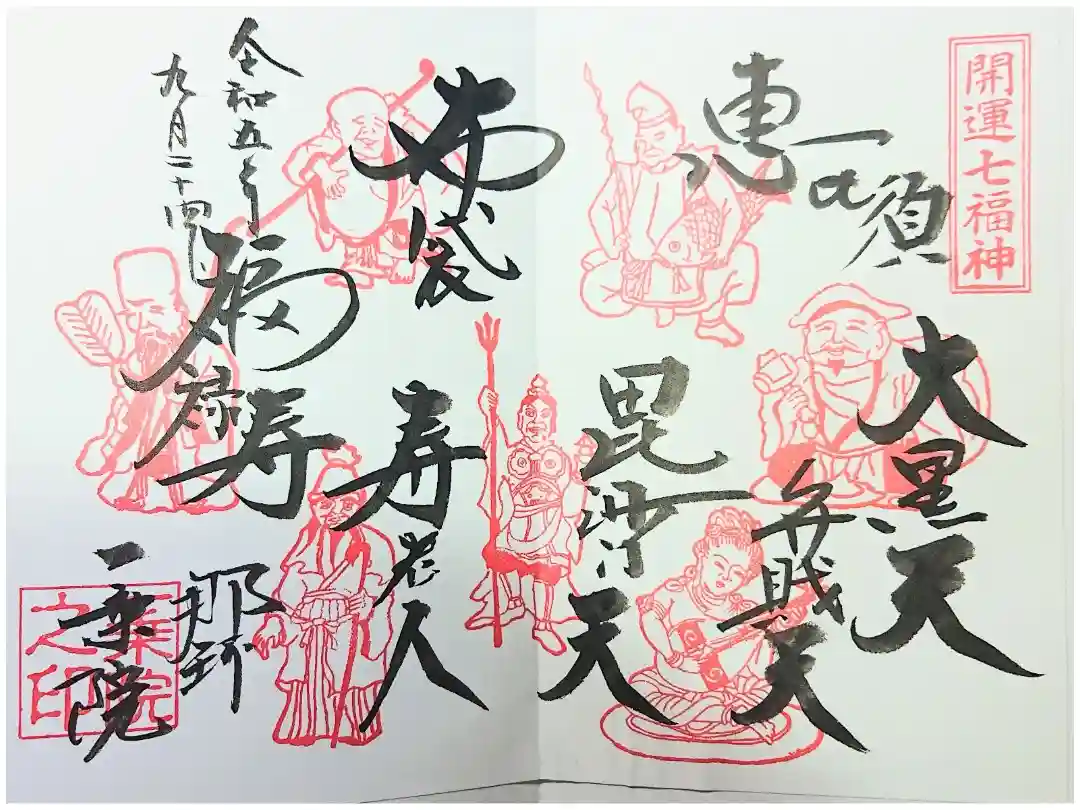 開運七福神
恵比須
大黒天
弁財天
毘沙門天
布袋
寿老人
福禄寿
令和五年
九月二十四日
那須
一乗院
一乗院之印